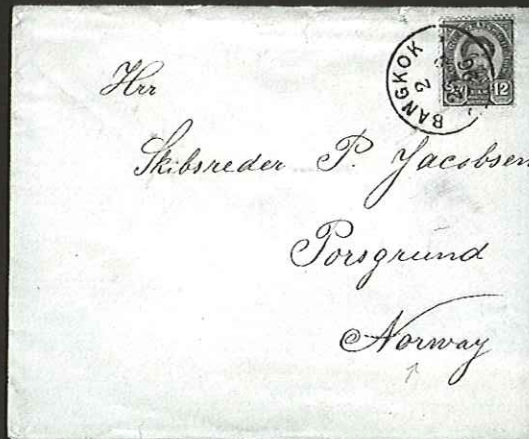 BANGKOK
2
12
Hrr
Skibsreder P. Jacobsen
Porsgrund
Norway